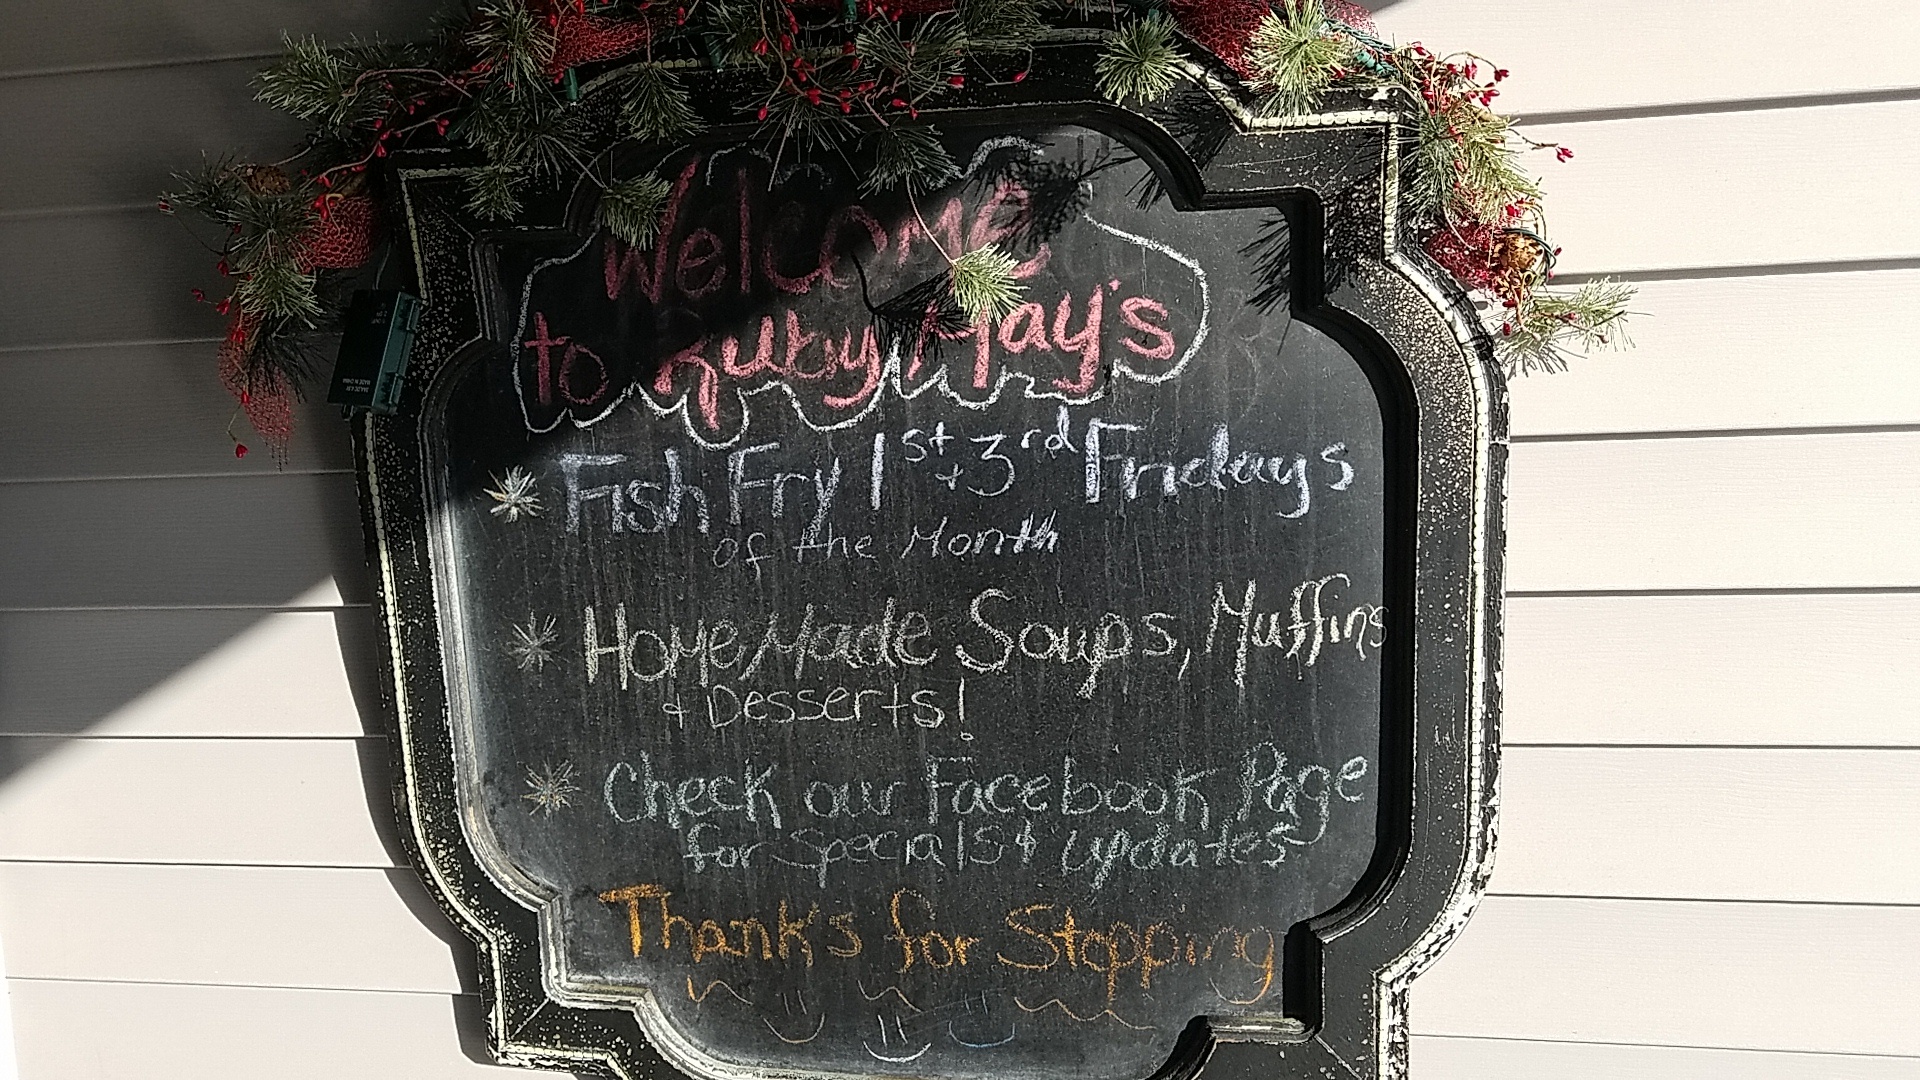 Welcome
to Ruby May's
Fish Fry 1st + 3rd Fridays
of the Month
HomeMade Soups, Muffins
& Desserts!
Check our Facebook Page
for specials & updates
Thank's for Stopping